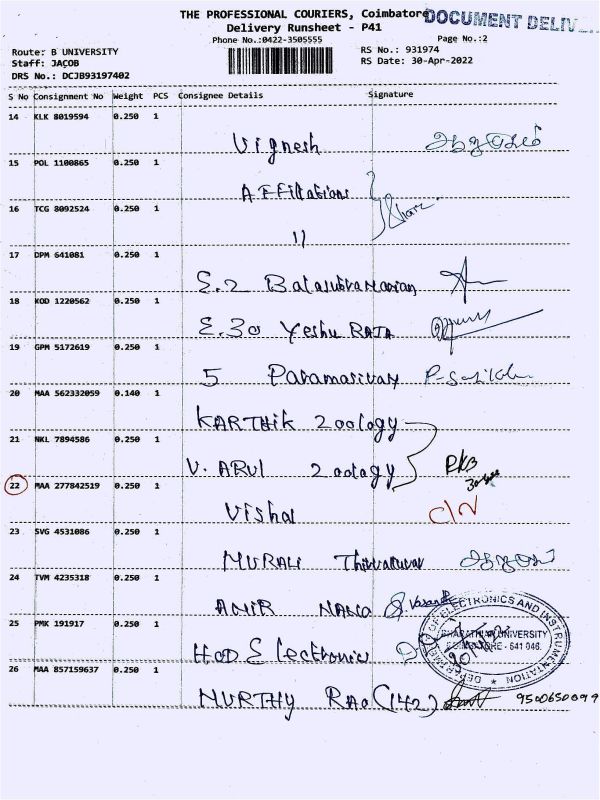 THE PROFESSIONAL COURIERS, Coimbatore
DOCUMENT DELIV
Delivery Runsheet - P41
Phone No.:0422-3505555
Page No.:2
Route: B UNIVERSITY
RS No.: 931974
Staff: JACOB
RS Date: 30-Apr-2022
DRS No.: DCJB93197402
S No Consignment No Weight PCS Consignee Details Signature
14 KLK 8019594 0.250 1
Vignesh
15 POL 1100865 0.250 1
Affiliations
16 TCG 8092524 0.250 1
11
17 DPM 641081 0.250 1
E.2 Balasubramanian
18 KOD 1220562 0.250 1
E.30 Yeshu RAJA
19 GPM 5172619 0.250 1
5 Paramasivam
20 MAA 562332059 0.140 1
KARTHIK Zoology
21 NKL 7894586 0.250 1
V. ARUL Zoology
22 MAA 277842519 0.250 1
Vishal
23 SVG 4531086 0.250 1
MURALI
24 TVM 4235318 0.250 1
AMIR NANO
25 PMK 191917 0.250 1
HOD Electronics
DEPARTMENT OF ELECTRONICS AND INSTRUMENTATION
BHARATHIAR UNIVERSITY
COIMBATORE - 641 046.
26 MAA 857159637 0.250 1
MURTHY RAO (142) 9500650099